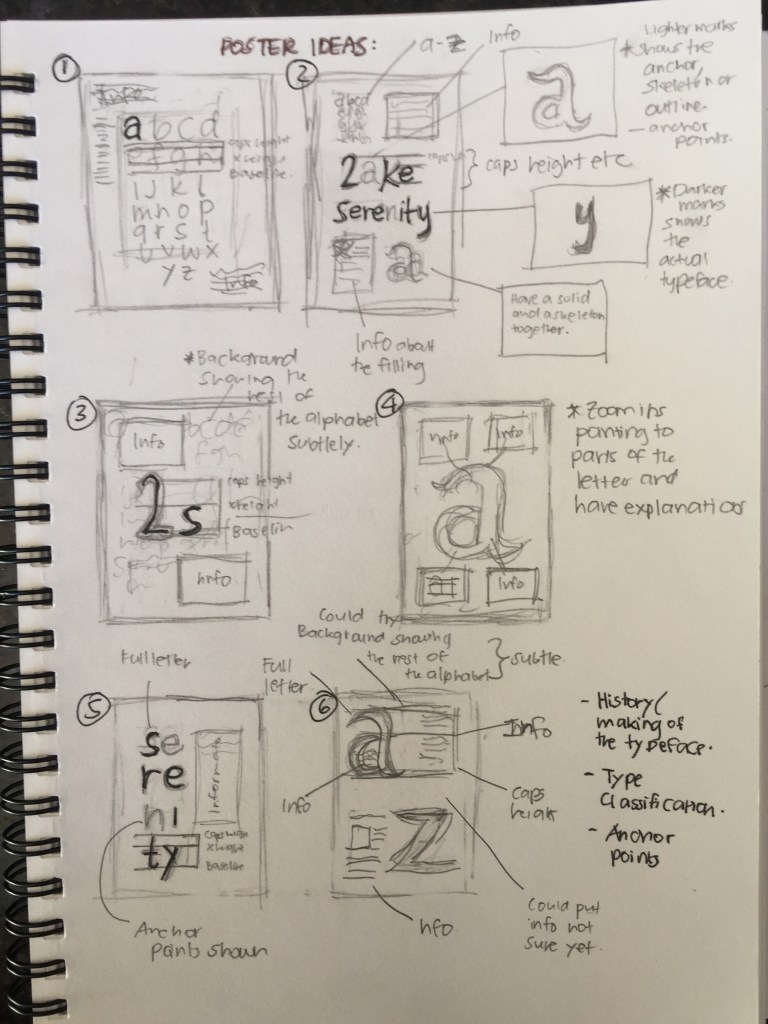 POSTER IDEAS:
①
Info
abcd
efgh
ijkl
mnop
qrst
uvwx
yz
Info
caps height
xheight
Baseline.
②
a-z
info
abcd
2ake
serenity
a
} caps height etc
Info about
the filling
a
Lighter marks
*shows the
anchor,
skeleton or
outline.
- anchor
points.
y
*Darker
marks
shows
the
actual
typeface.
Have a solid
and a skeleton
together.
③
*Background
showing the
rest of
the alphabet
subtlely.
Info
2s
caps height
xheight
Baselin
Info
④
Info
Info
a
Info
*Zoom ins
ponting to
parts of the
letter and
have explanations
⑤
Full letter
se
re
ni
ty
Informati
caps height
xheight
Baseline
Anchor
points shown
⑥
Could try
Background showing
the rest of
the alphabet } subtle.
Full
letter
a
Info
Info
Caps
height
z
Info
Could put
info not
sure yet.
- History/
making of
the typeface.
- Type
Classification.
- Anchor
points